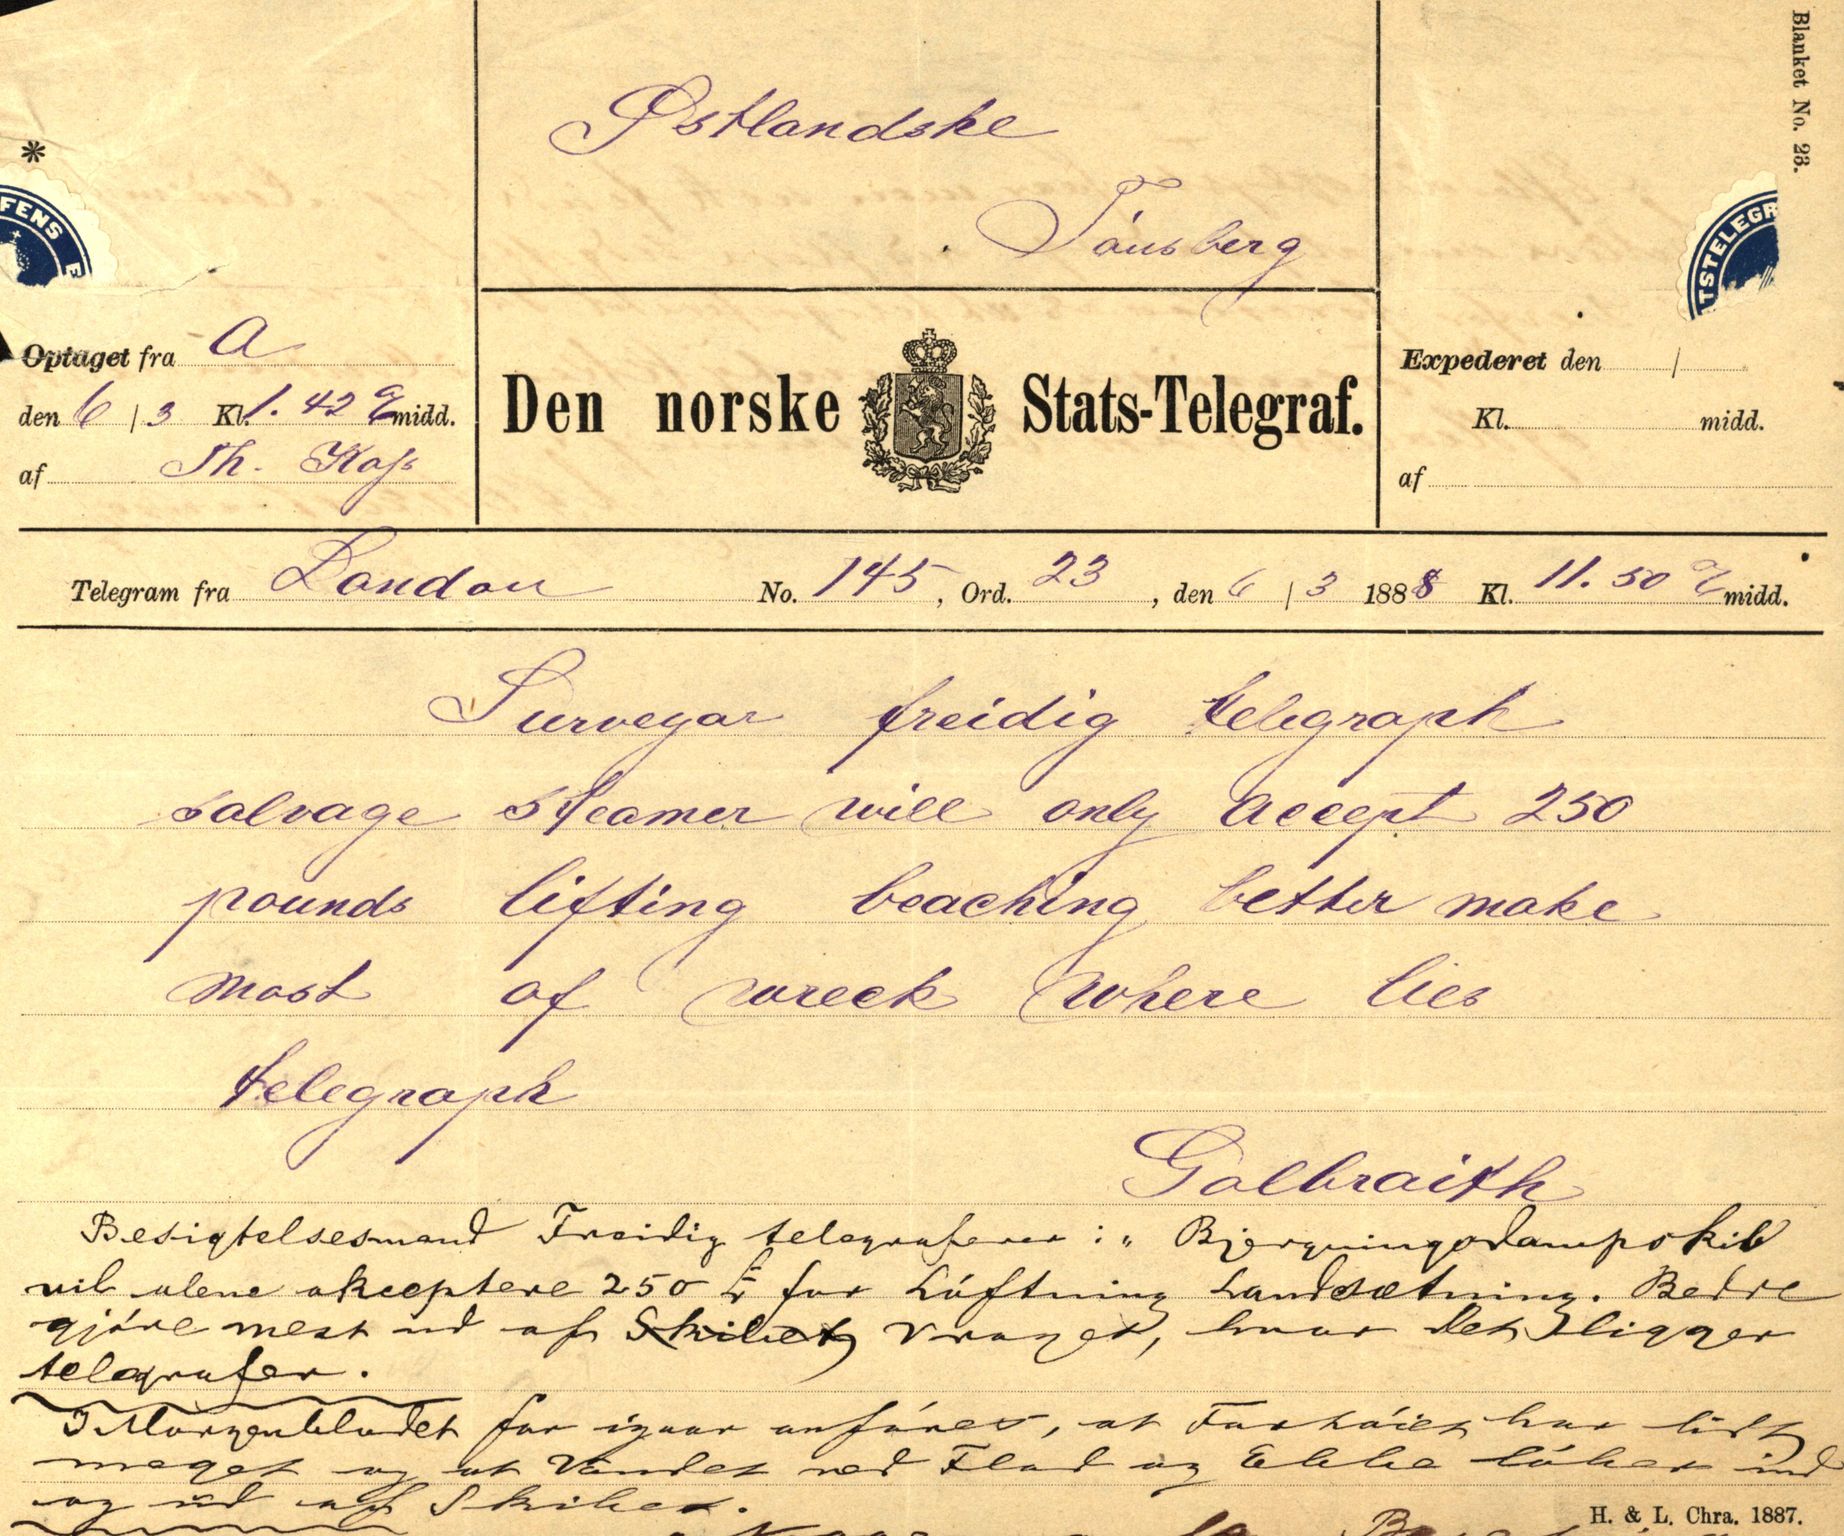 Blanket No. 23.
Østlandske
Tönsberg
*
FENS
TSTELEGR
Optaget fra A
den 6 / 3 Kl. 1.42 E midd.
af Th. Kass
Den norske Stats-Telegraf.
Expederet den /
Kl. midd.
af
Telegram fra London No. 145, Ord. 23, den 6 / 3 1888 Kl. 11.50 midd.
Surveyor freidig telegraph
salvage steamer will only accept 250
pounds lifting beaching better make
most of wreck where lies
telegraph
Galbraith
Besigtelsesmand Freidig telegraferer: „Bjergningsdampskib
vil alene akceptere 250 £ for Løftning Landsætning. Bedre
gjøre mest ud af Skibet Vraget, hvor det ligger
telegrafer.
I Morgenbladet for igaar anføres, at Fartøiet har lidt
meget og at Vandet ved Flod og Ebbe løber ind
og ud af Skibet.
H. & L. Chra. 1887.